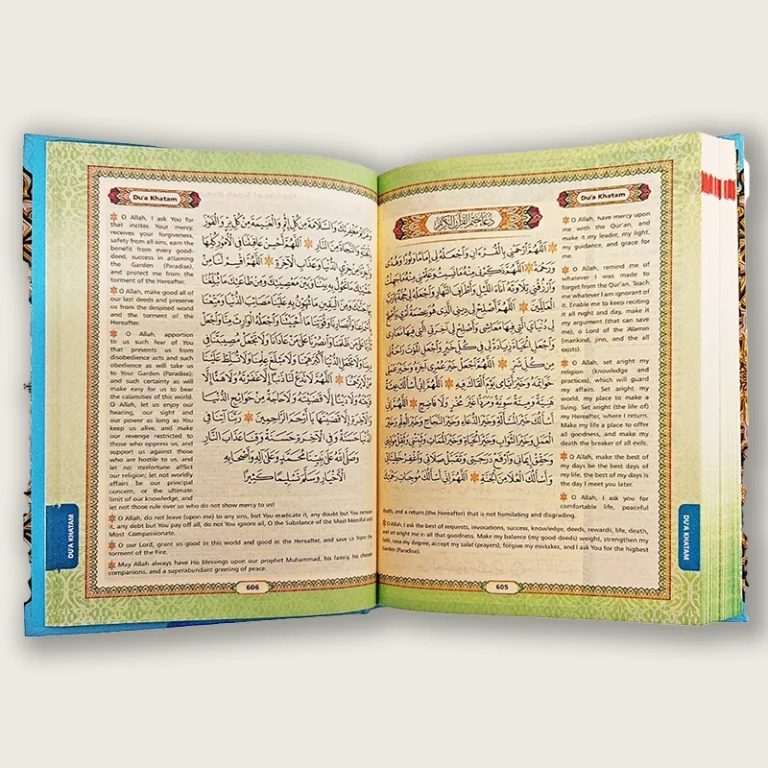 Du'a Khatam
دعاء ختم القرآن الكريم
اَللّٰهُمَّ ارْحَمْنِيْ بِالْقُرْاٰنِ وَاجْعَلْهُ لِيْ اِمَامًا وَنُوْرًا وَهُدًى
وَرَحْمَةً اَللّٰهُمَّ ذَكِّرْنِيْ مِنْهُ مَا نَسِيْتُ وَعَلِّمْنِيْ مِنْهُ مَا جَهِلْتُ
وَارْزُقْنِيْ تِلَاوَتَهُ اٰنَاءَ اللَّيْلِ وَاَطْرَافَ النَّهَارِ وَاجْعَلْهُ لِيْ حُجَّةً يَا رَبَّ
الْعَالَمِيْنَ اَللّٰهُمَّ اَصْلِحْ لِيْ دِيْنِيَ الَّذِيْ هُوَ عِصْمَةُ اَمْرِيْ وَاَصْلِحْ
لِيْ دُنْيَايَ الَّتِيْ فِيْهَا مَعَاشِيْ وَاَصْلِحْ لِيْ اٰخِرَتِي الَّتِيْ فِيْهَا مَعَادِيْ
وَاجْعَلِ الْحَيَاةَ زِيَادَةً لِيْ فِيْ كُلِّ خَيْرٍ وَاجْعَلِ الْمَوْتَ رَاحَةً لِيْ
مِنْ كُلِّ شَرٍّ اَللّٰهُمَّ اجْعَلْ خَيْرَ عُمْرِيْ اٰخِرَهُ وَخَيْرَ عَمَلِيْ
خَوَاتِمَهُ وَخَيْرَ اَيَّامِيْ يَوْمَ اَلْقَاكَ فِيْهِ اَللّٰهُمَّ اِنِّيْ اَسْأَلُكَ عِيْشَةً
هَنِيَّةً وَمِيْتَةً سَوِيَّةً وَمَرَدًّا غَيْرَ مُخْزٍ وَلَا فَاضِحٍ اَللّٰهُمَّ اِنِّيْ
اَسْأَلُكَ خَيْرَ الْمَسْأَلَةِ وَخَيْرَ الدُّعَاءِ وَخَيْرَ النَّجَاحِ وَخَيْرَ الْعِلْمِ وَخَيْرَ
الْعَمَلِ وَخَيْرَ الثَّوَابِ وَخَيْرَ الْحَيَاةِ وَخَيْرَ الْمَمَاتِ وَثَبِّتْنِيْ وَثَقِّلْ مَوَازِيْنِيْ
وَحَقِّقْ اِيْمَانِيْ وَارْفَعْ دَرَجَتِيْ وَتَقَبَّلْ صَلَاتِيْ وَاغْفِرْ خَطِيْئَاتِيْ
وَاَسْأَلُكَ الْعُلَا مِنَ الْجَنَّةِ اَللّٰهُمَّ اِنِّيْ اَسْأَلُكَ مُوْجِبَاتِ رَحْمَتِكَ
O Allah, have mercy upon
me with the Qur'an, and
make it my leader, my light,
my guidance, and grace for
me.
O Allah, remind me of
whatever I was made to
forget from the Qur'an. Teach
me whatever I am ignorant of
it. Enable me to keep reciting
it all night and day, make it
my argument (that can save
me), o Lord of the 'Alamin
(mankind, jinn, and the all
exists).
O Allah, set aright my
religion (knowledge and
practices), which will guard
my affairs. Set aright my
world, my place to make a
living. Set aright (the life of)
my Hereafter, where I return.
Make my life a place to offer
all goodness, and make my
death the breaker of all evils.
O Allah, make the best of
my days be the best of my
life, the best of my days is
the day I meet you later.
O Allah, I ask you for
comfortable life, peaceful
death, and a return (the Hereafter) that is not humiliating and disgrading.
O Allah, I ask the best of requests, invocations, success, knowledge, deeds, rewards, life, death,
and set aright me in all that goodness. Make my balance (my good deeds) weight, strengthen my
faith, raise my degree, accept my salat (prayers), forgive my mistakes, and I ask You for the highest
Garden (Paradise).
605
DU'A KHATAM
Du'a Khatam
وَعَزَائِمَ مَغْفِرَتِكَ وَالسَّلَامَةَ مِنْ كُلِّ اِثْمٍ وَالْغَنِيْمَةَ مِنْ كُلِّ بِرٍّ وَالْفَوْزَ
بِالْجَنَّةِ وَالنَّجَاةَ مِنَ النَّارِ اَللّٰهُمَّ اَحْسِنْ عَاقِبَتَنَا فِي الْاُمُوْرِ كُلِّهَا
وَاَجِرْنَا مِنْ خِزْيِ الدُّنْيَا وَعَذَابِ الْاٰخِرَةِ اَللّٰهُمَّ اقْسِمْ لَنَا مِنْ
خَشْيَتِكَ مَا تَحُوْلُ بِهِ بَيْنَنَا وَبَيْنَ مَعْصِيَتِكَ وَمِنْ طَاعَتِكَ مَا تُبَلِّغُنَا
بِهَا جَنَّتَكَ وَمِنَ الْيَقِيْنِ مَا تُهَوِّنُ بِهِ عَلَيْنَا مَصَائِبَ الدُّنْيَا وَمَتِّعْنَا
بِاَسْمَاعِنَا وَاَبْصَارِنَا وَقُوَّتِنَا مَا اَحْيَيْتَنَا وَاجْعَلْهُ الْوَارِثَ مِنَّا وَاجْعَلْ
ثَأْرَنَا عَلٰى مَنْ ظَلَمَنَا وَانْصُرْنَا عَلٰى مَنْ عَادَانَا وَلَا تَجْعَلْ مُصِيْبَتَنَا فِيْ
دِيْنِنَا وَلَا تَجْعَلِ الدُّنْيَا اَكْبَرَ هَمِّنَا وَلَا مَبْلَغَ عِلْمِنَا وَلَا تُسَلِّطْ عَلَيْنَا
مَنْ لَا يَرْحَمُنَا اَللّٰهُمَّ لَا تَدَعْ لَنَا ذَنْبًا اِلَّا غَفَرْتَهُ وَلَا هَمًّا اِلَّا
فَرَّجْتَهُ وَلَا دَيْنًا اِلَّا قَضَيْتَهُ وَلَا حَاجَةً مِنْ حَوَائِجِ الدُّنْيَا
وَالْاٰخِرَةِ اِلَّا قَضَيْتَهَا يَا اَرْحَمَ الرَّاحِمِيْنَ رَبَّنَا اٰتِنَا فِي
الدُّنْيَا حَسَنَةً وَفِي الْاٰخِرَةِ حَسَنَةً وَقِنَا عَذَابَ النَّارِ
وَصَلَّى اللّٰهُ عَلٰى نَبِيِّنَا مُحَمَّدٍ وَعَلٰى اٰلِهِ وَاَصْحَابِهِ
الْاَخْيَارِ وَسَلَّمَ تَسْلِيْمًا كَثِيْرًا
O Allah, I ask You for
that incites Your mercy,
receives your forgiveness,
safety from all sins, earn the
benefit from every good-
deed, success in attaining
the Garden (Paradise),
and protect me from the
torment of the Hereafter.
O Allah, make good all of
our last deeds and preserve
us from the despised world
and the torment of the
Hereafter.
O Allah, apportion
to us such fear of You
that prevents us from
disobedience acts and such
obedience as will take us
to Your Garden (Paradise);
and such certainty as will
make easy for us to bear
the calamities of this world.
O Allah, let us enjoy our
hearing, our sight and
our power as long as You
keep us alive, and make
our revenge restricted to
those who oppress us, and
support us against those
who are hostile to us, and
let no misfortune afflict
our religion; let not worldly
affairs be our principal
concern, or the ultimate
limit of our knowledge, and
let not those rule over us who do not show mercy to us!
O Allah, do not leave (upon me) to any sins, but You eradicate it, any doubt but You remove
it, any debt but You pay off all, do not You ignore all, O the Substance of the Most Merciful and
Most Compassionate.
O our Lord, grant us good in this world and good in the Hereafter, and save us from the
torment of the Fire.
May Allah always have His blessings upon our prophet Muhammad, his family, his chosen
companions, and a superabundant greeting of peace.
606
DU'A KHATAM